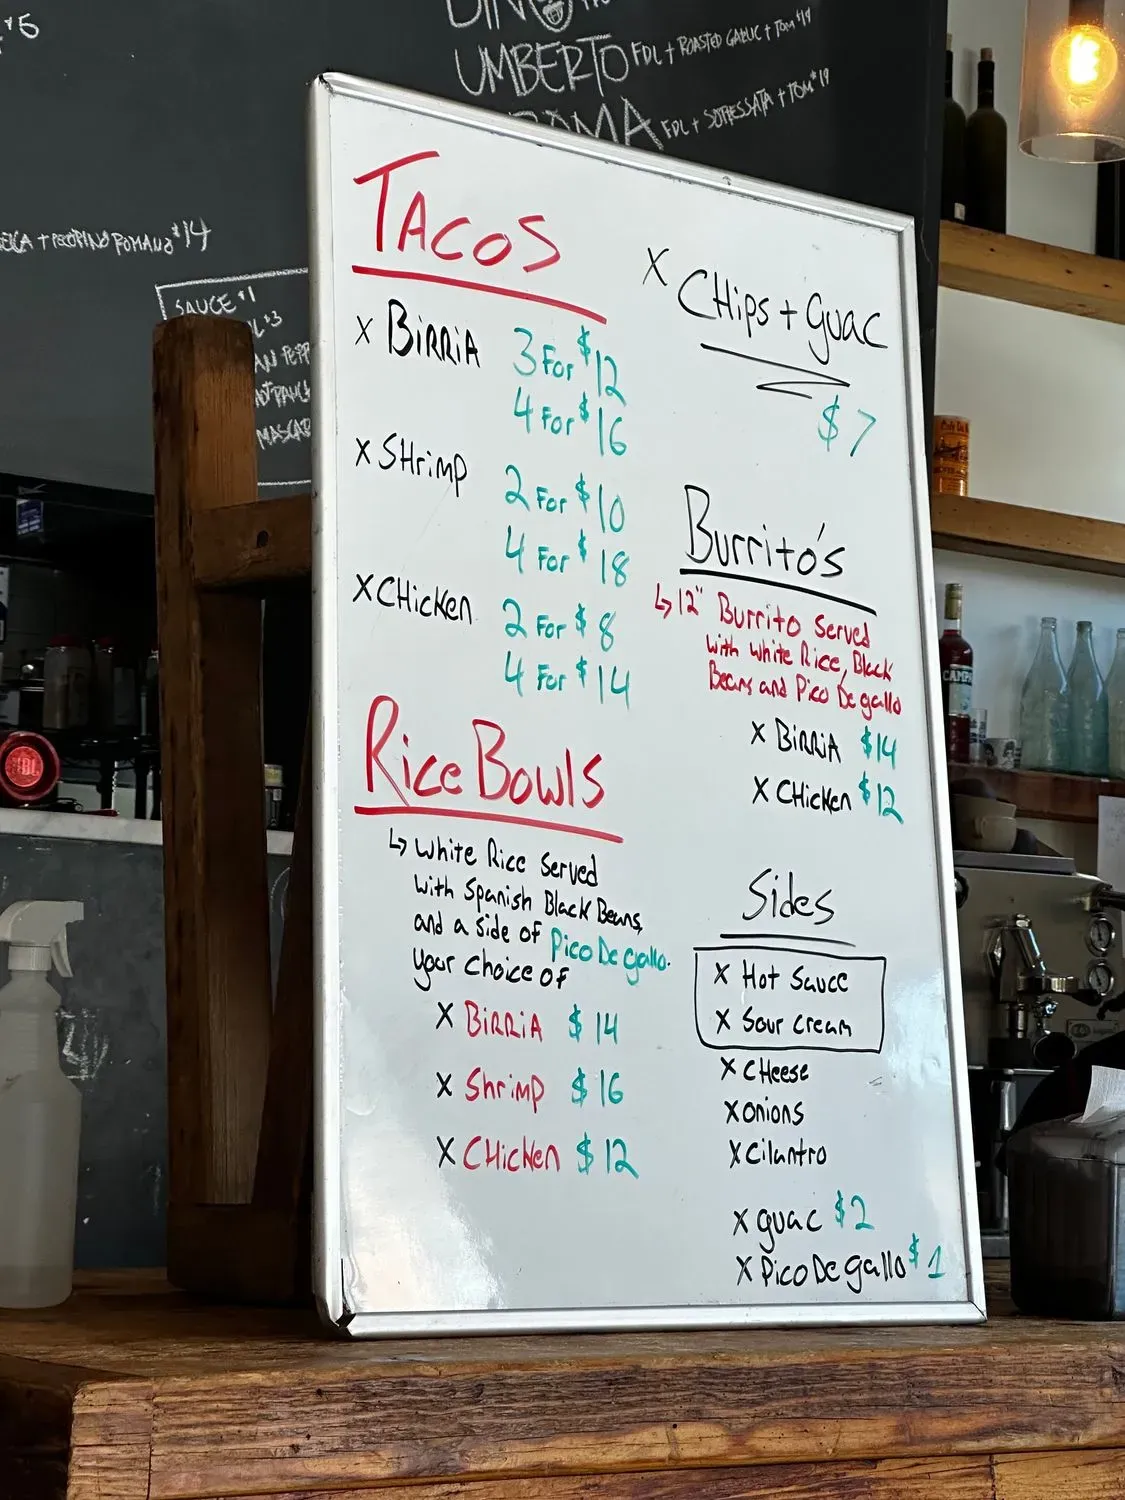 $5
UMBERTO FDL + ROASTED GARLIC + TOM $19
FDL + SOPRESSATA + TOM $19
+ PECORINO ROMANO $14
SAUCE $1
TACOS
X BIRRIA 3 FOR $12
4 FOR $16
X SHrimp
2 FOR $10
4 FOR $18
X CHicKen 2 FOR $8
4 FOR $14
Rice Bowls
↳ White Rice Served
with Spanish Black Beans,
and a side of Pico De gallo.
your choice of
X BIRRIA $14
X Shrimp $16
X CHicKen $12
X CHips + guac
$7
Burrito's
↳ 12" Burrito Served
with white Rice, Black
Beans and Pico De gallo
X BIRRIA $14
X CHicKen $12
Sides
X Hot Sauce
X Sour cream
X CHeese
X onions
X cilantro
X guac $2
X Pico De gallo $1
CAMPA
JBL